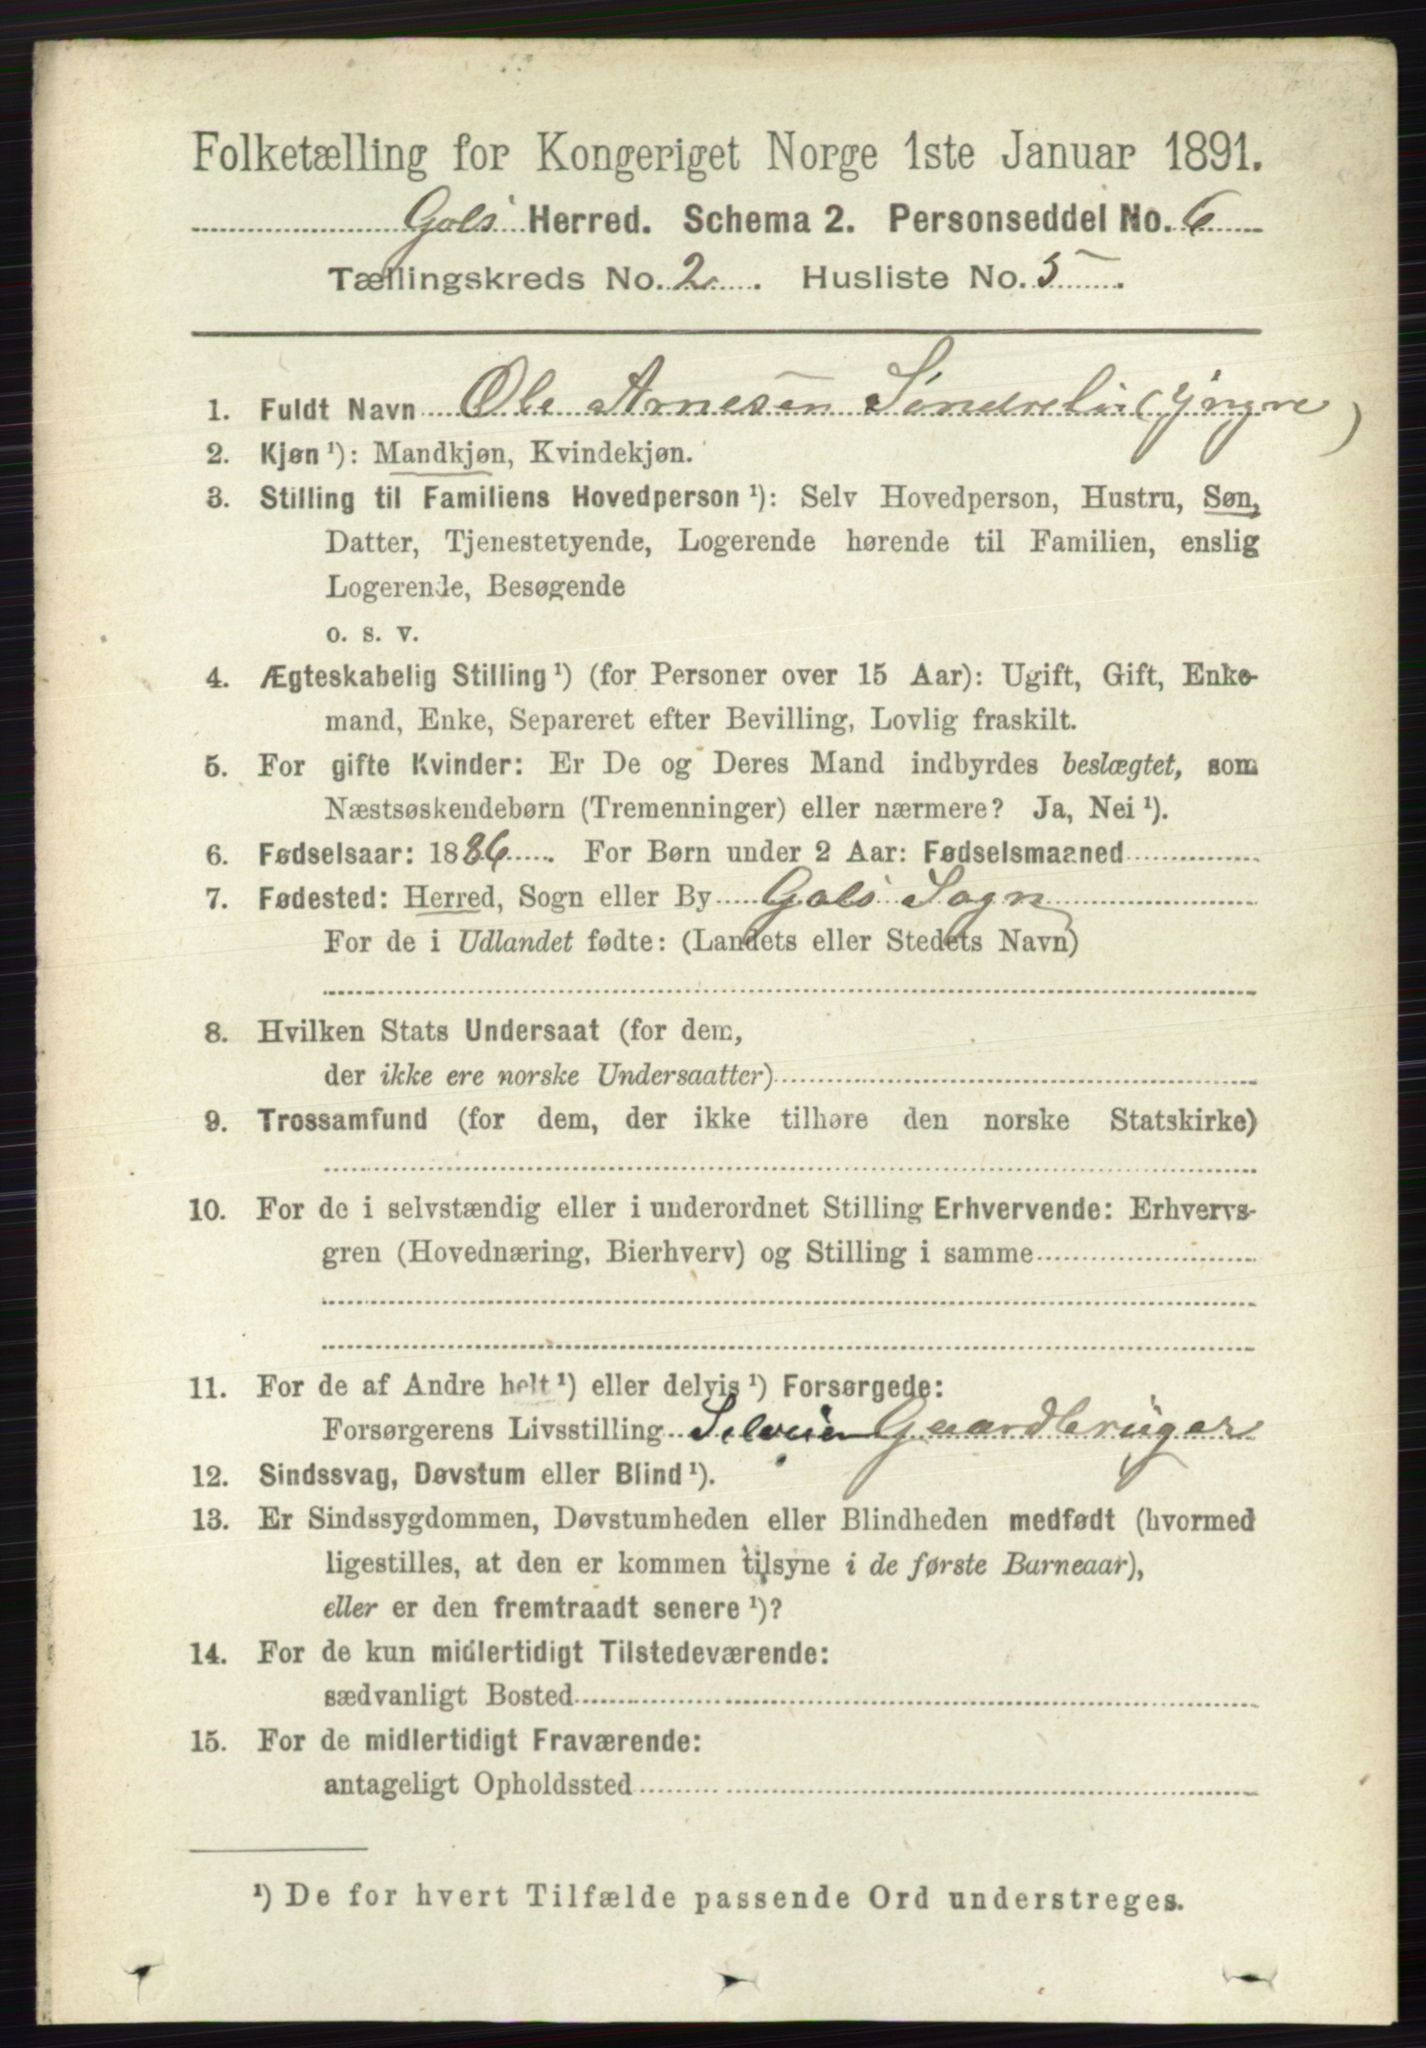 Folketælling for Kongeriget Norge 1ste Januar 1891.
Gols Herred. Schema 2. Personseddel No. 6
Tællingskreds No. 2. Husliste No. 5.
1. Fuldt Navn Ole Arnesen Søndreli (Yngre)
2. Kjøn ¹): Mandkjøn, Kvindekjøn.
3. Stilling til Familiens Hovedperson ¹): Selv Hovedperson, Hustru, Søn,
Datter, Tjenestetyende, Logerende hørende til Familien, enslig
Logerende, Besøgende
o. s. v.
4. Ægteskabelig Stilling ¹) (for Personer over 15 Aar): Ugift, Gift, Enke-
mand, Enke, Separeret efter Bevilling, Lovlig fraskilt.
5. For gifte Kvinder: Er De og Deres Mand indbyrdes beslægtet, som
Næstsøskendebørn (Tremenninger) eller nærmere? Ja, Nei ¹).
6. Fødselsaar: 1886. For Børn under 2 Aar: Fødselsmaaned
7. Fødested: Herred, Sogn eller By Gols Sogn
For de i Udlandet fødte: (Landets eller Stedets Navn)
8. Hvilken Stats Undersaat (for dem,
der ikke ere norske Undersaatter)
9. Trossamfund (for dem, der ikke tilhøre den norske Statskirke)
10. For de i selvstændig eller i underordnet Stilling Erhvervende: Erhvervs-
gren (Hovednæring, Bierhverv) og Stilling i samme
11. For de af Andre helt ¹) eller delvis ¹) Forsørgede:
Forsørgerens Livsstilling Selveier Gaardbruger
12. Sindssvag, Døvstum eller Blind ¹).
13. Er Sindssygdommen, Døvstumheden eller Blindheden medfødt (hvormed
ligestilles, at den er kommen tilsyne i de første Barneaar),
eller er den fremtraadt senere ¹)?
14. For de kun midlertidigt Tilstedeværende:
sædvanligt Bosted
15. For de midlertidigt Fraværende:
antageligt Opholdssted
¹) De for hvert Tilfælde passende Ord understreges.